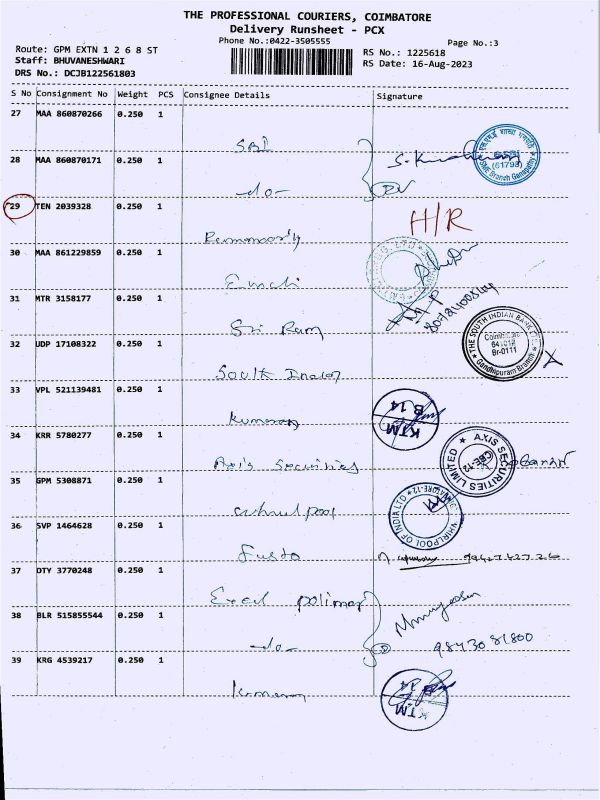 THE PROFESSIONAL COURIERS, COIMBATORE
Delivery Runsheet - PCX
Phone No.:0422-3505555
Page No.:3
Route: GPM EXTN 1 2 6 8 ST
Staff: BHUVANESHWARI
DRS No.: DCJB122561803
RS No.: 1225618
RS Date: 16-Aug-2023
S No Consignment No Weight PCS Consignee Details Signature
27 MAA 860870266 0.250 1
SBI
28 MAA 860870171 0.250 1
-do-
29 TEN 2039328 0.250 1
H/R
30 MAA 861229859 0.250 1
31 MTR 3158177 0.250 1
Sri Ram
32 UDP 17108322 0.250 1
THE SOUTH INDIAN BANK LTD
Coimbatore
641012
Br-0111
Gandhipuram Branch
South Indian
33 VPL 521139481 0.250 1
KTM
B 14
Kumaran
34 KRR 5780277 0.250 1
AXIS SECURITIES LIMITED
CBE-12
Axis Securities
35 GPM 5308871 0.250 1
WHIRLPOOL OF INDIA LTD
whirlpool
36 SVP 1464628 0.250 1
37 OTY 3770248 0.250 1
Excel polimar
38 BLR 515855544 0.250 1
-do-
9843081800
39 KRG 4539217 0.250 1
KTM